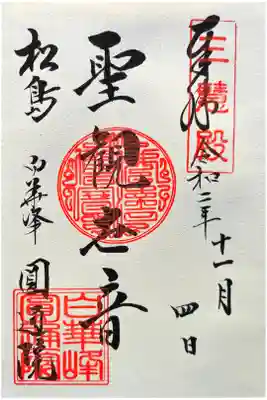 奉拝
三慧殿
令和二年十一月四日
聖観世音
松島
白華峰
圓通院
白華峰
圓通院